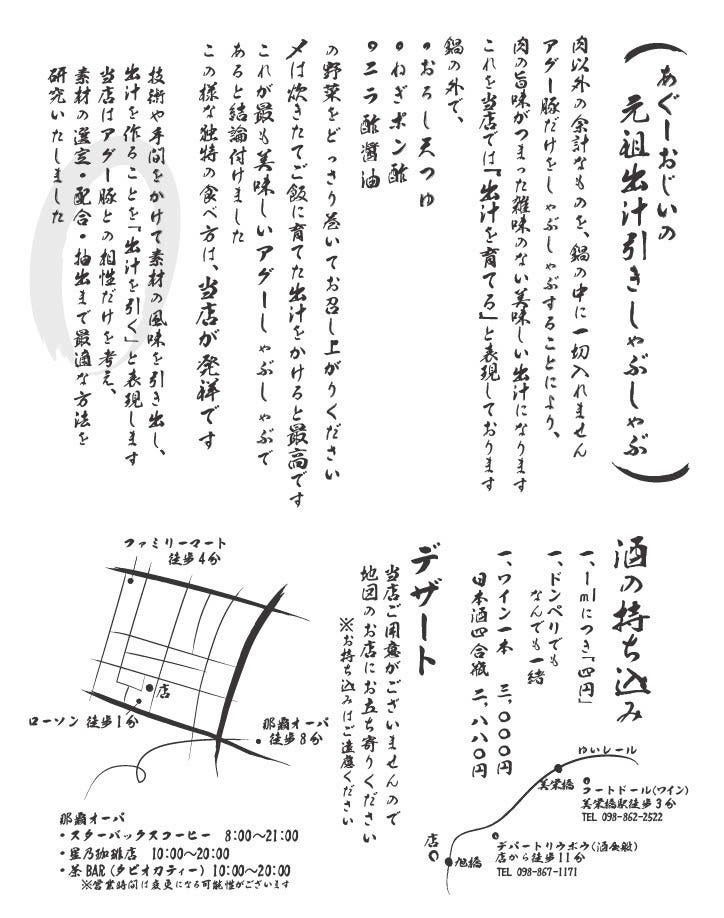 あぐーおじいの
元祖出汁引きしゃぶしゃぶ
肉以外の余計なものを、鍋の中に一切入れません
アグー豚だけをしゃぶしゃぶすることにより、
肉の旨味がつまった雑味のない美味しい出汁になります
これを当店では『出汁を育てる』と表現しております
鍋の外で、
•おろし天つゆ
•ねぎポン酢
•ニラ酢醤油
の野菜をどっさり巻いてお召し上がりください
〆は炊きたてご飯に育てた出汁をかけると最高です
これが最も美味しいアグーしゃぶしゃぶで
あると結論付けました
この様な独特の食べ方は、当店が発祥です
技術や手間をかけて素材の風味を引き出し、
出汁を作ることを『出汁を引く』と表現します
当店はアグー豚との相性だけを考え、
素材の選定・配合・抽出まで最適な方法を
研究いたしました
酒の持ち込み
一、1mlにつき『四円』
一、ドンペリでも
なんでも一緒
一、ワイン一本 三、〇〇〇円
日本酒四合瓶 二、八八〇円
デザート
当店ご用意がございませんので
地図のお店にお立ち寄りください
※お持ち込みはご遠慮ください
ファミリーマート
徒歩4分
店
ローソン 徒歩1分
那覇オーパ
徒歩8分
那覇オーパ
・スターバックスコーヒー 8:00〜21:00
・星乃珈琲店 10:00〜20:00
・茶BAR(タピオカティー) 10:00〜20:00
※営業時間は変更になる可能性がございます
ゆいレール
美栄橋
コートドール(ワイン)
美栄橋駅徒歩3分
TEL 098-862-2522
店
旭橋
デパートリウボウ(酒全般)
店から徒歩11分
TEL 098-867-1171